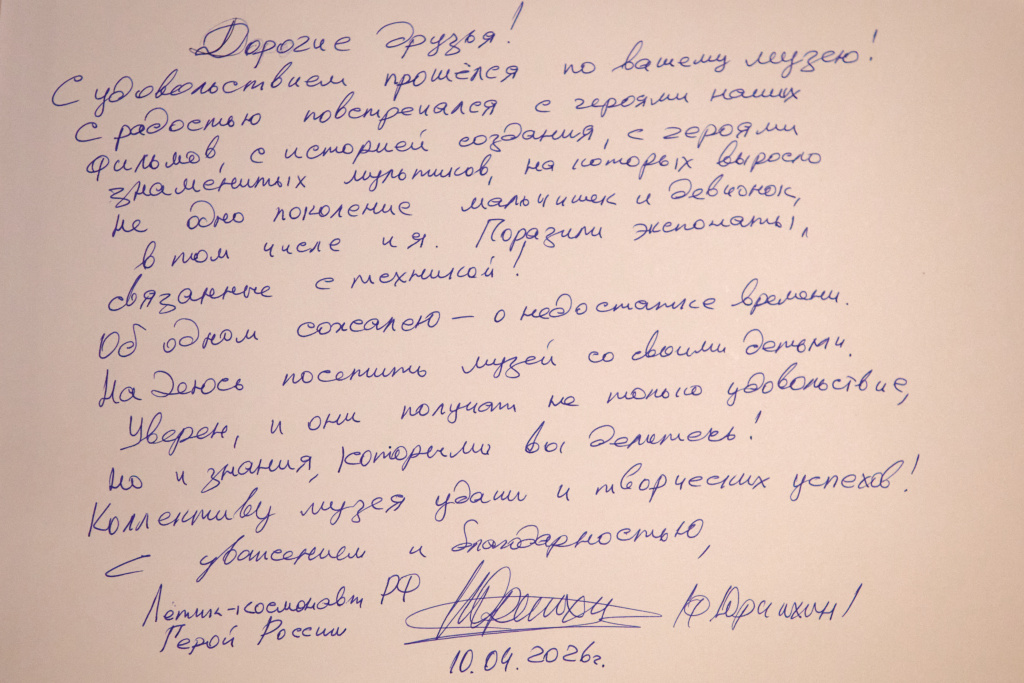 Дорогие друзья!
С удовольствием прошёлся по вашему музею!
С радостью повстречался с героями наших
фильмов, с историей создания, с героями
знаменитых мультиков, на которых выросло
не одно поколение мальчишек и девчонок,
в том числе и я. Поразили экспонаты,
связанные с техникой!
Об одном сожалею – о недостатке времени.
Надеюсь посетить музей со своими детьми.
Уверен, и они получат не только удовольствие,
но и знания, которыми вы делитесь!
Коллективу музея удачи и творческих успехов!
С уважением и благодарностью,
Лётчик-космонавт РФ
Герой России
/Ф Юрчихин/
10.04.2026г.